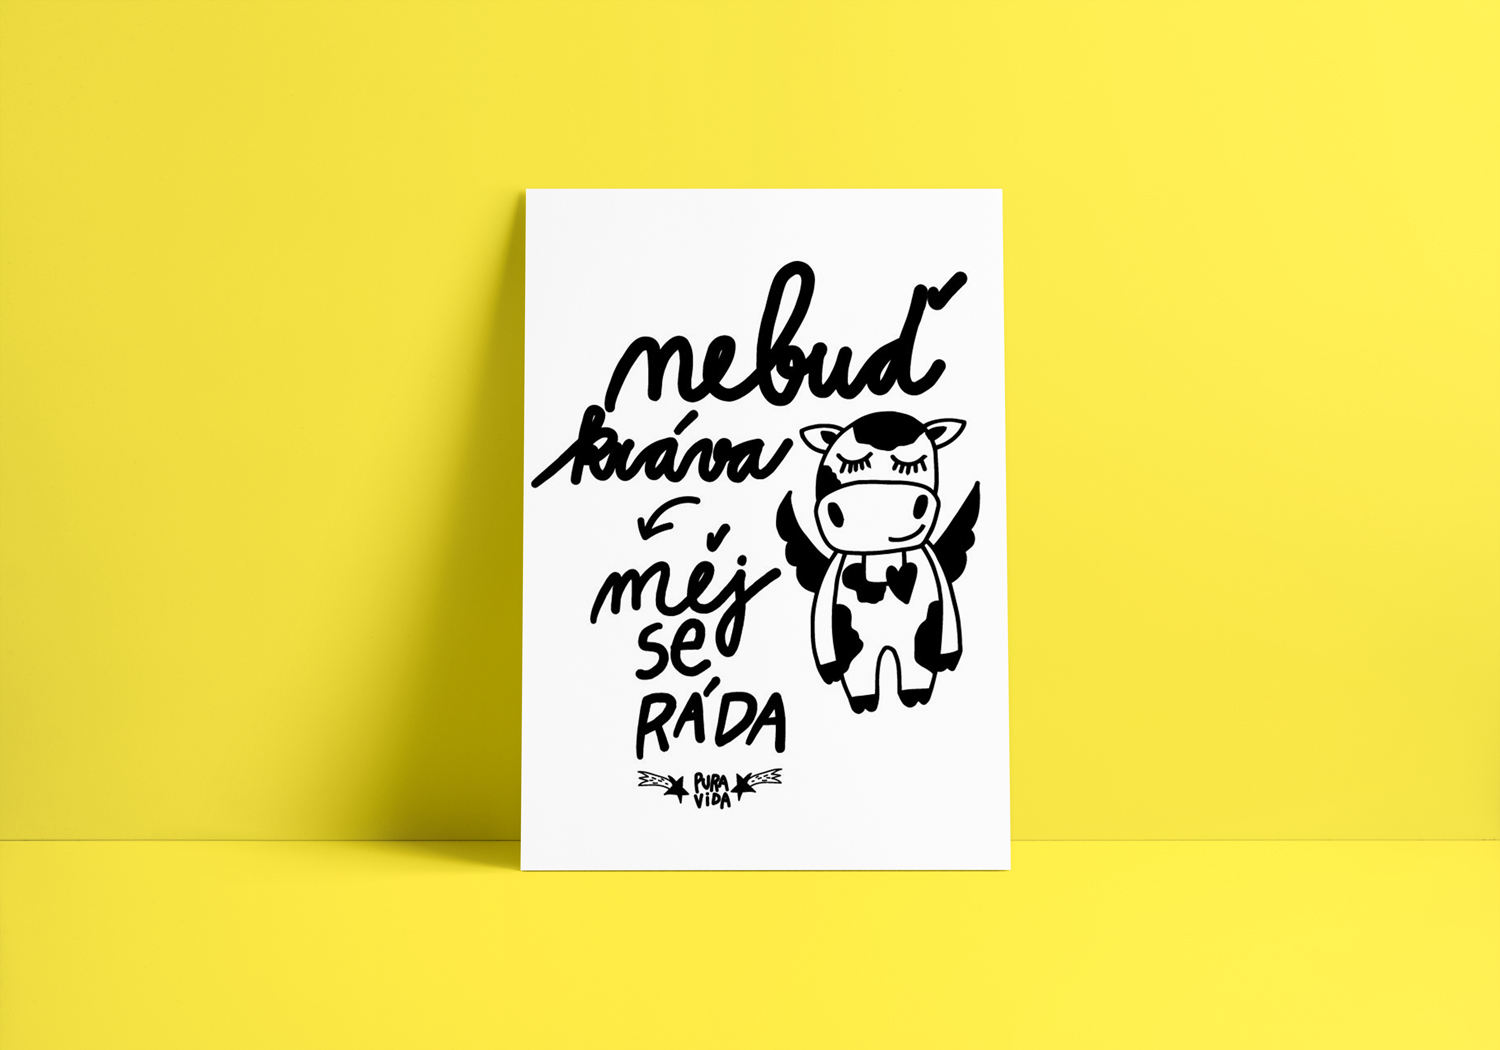 nebuď
kráva
měj
se
RÁDA
PURA
ViDA